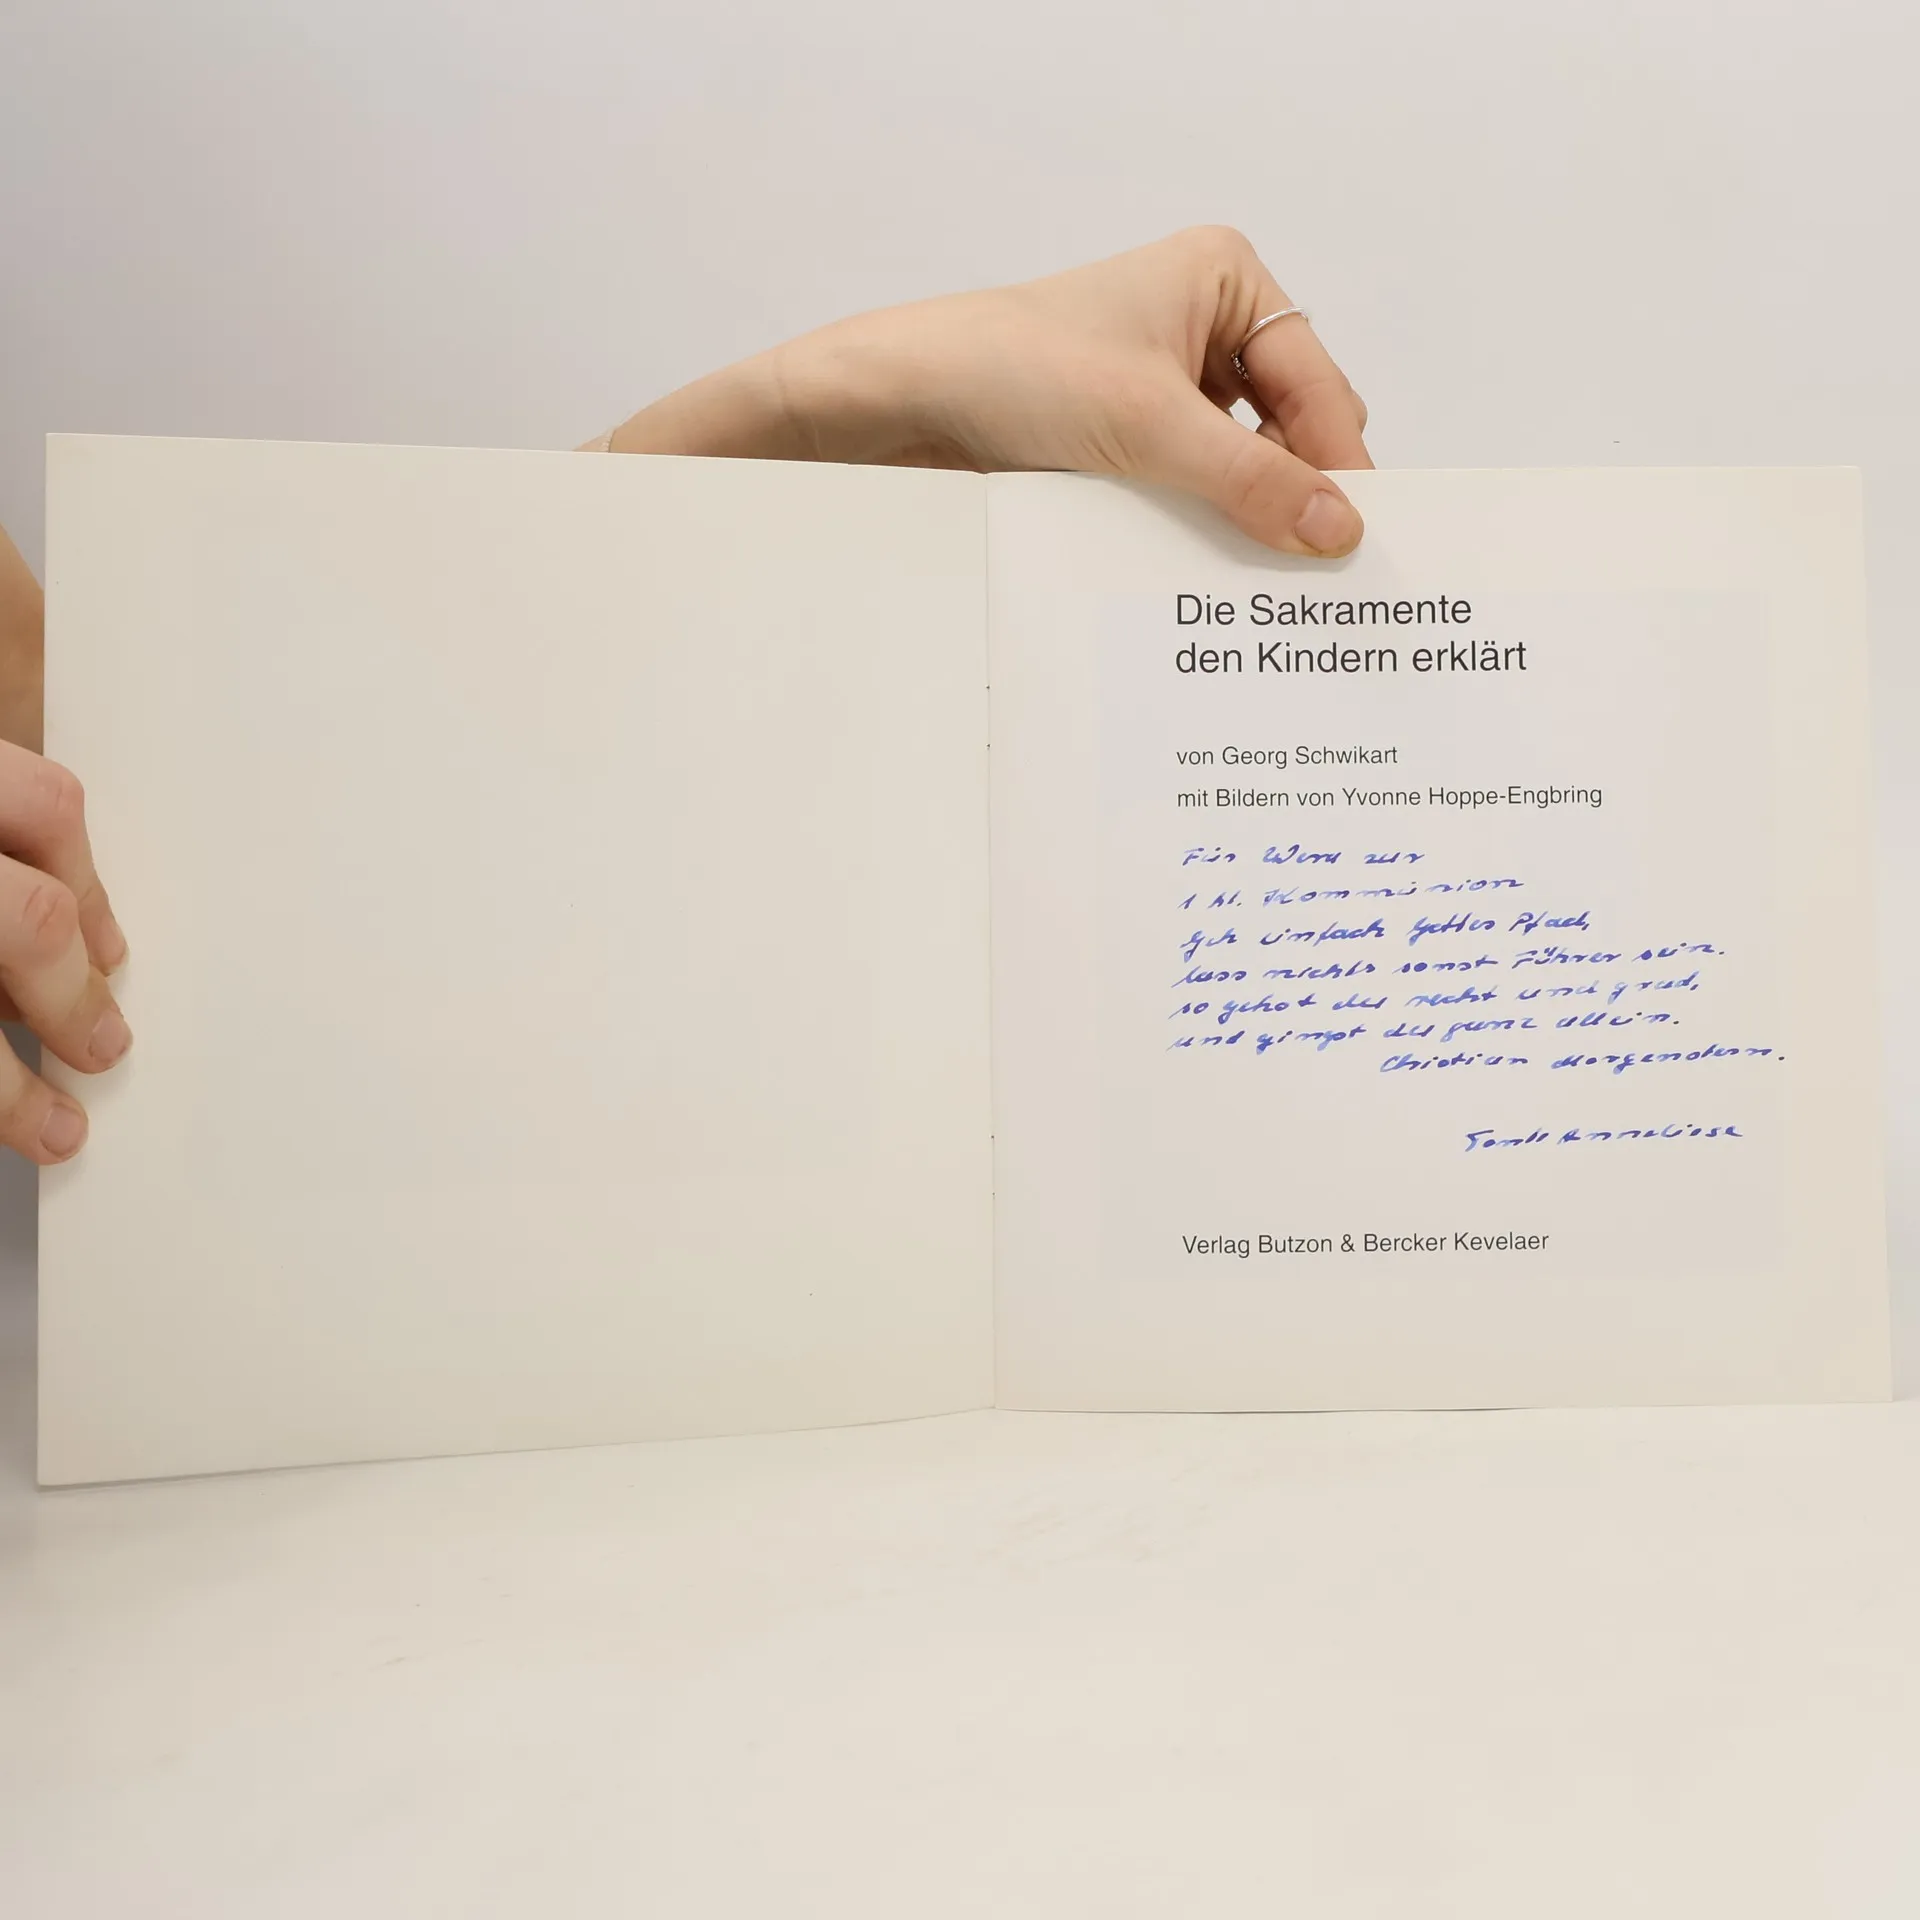 Die Sakramente
den Kindern erklärt
von Georg Schwikart
mit Bildern von Yvonne Hoppe-Engbring
Für zur
1 hl. Kommunion
Geh einfach Gottes Pfad,
lass nichts sonst Führer sein.
so gehst du recht und grad,
und gingst du ganz allein.
Christian Morgenstern.
Tante Anneliese
Verlag Butzon & Bercker Kevelaer